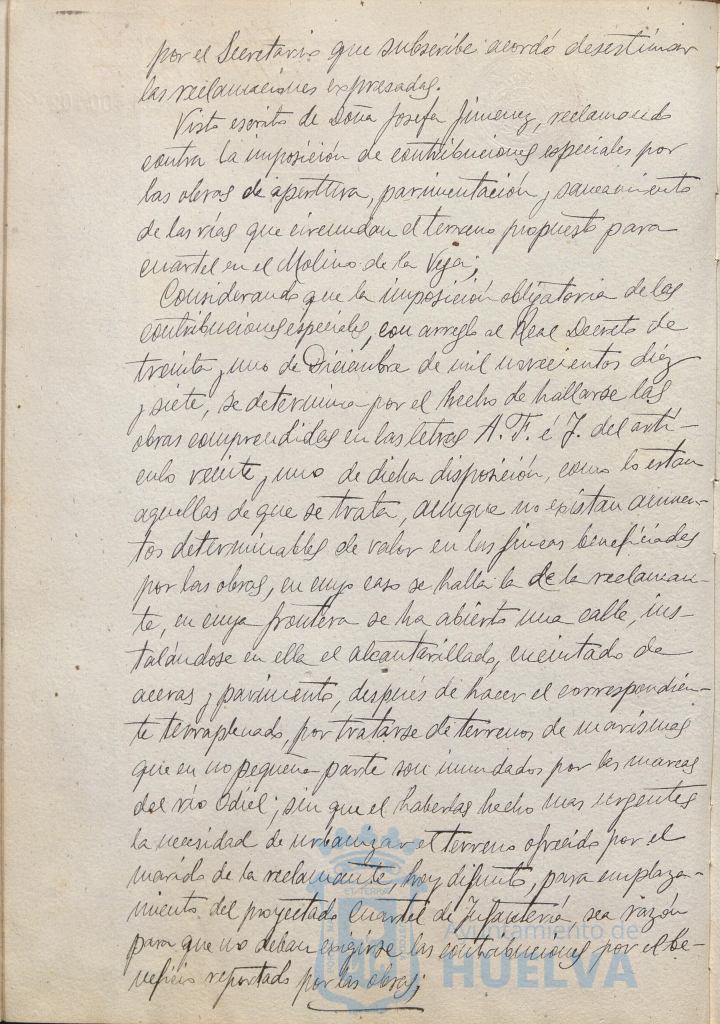 por el Secretario que subscribe acordó desestimar
las reclamaciones expresadas.
Visto escrito de Doña Josefa Jimenez, reclamando
contra la imposición de contribuciones especiales por
las obras de apertura, pavimentación y saneamiento
de las vías que circundan el terreno propuesto para
cuartel en el Molino de la Vega;
Considerando que la imposición obligatoria de las
contribuciones especiales, con arreglo al Real Decreto de
treinta y uno de Diciembre de mil novecientos diez
y siete, se determina por el hecho de hallarse las
obras comprendidas en las letras A. F. e J. del artí-
culo veinte y uno de dicha disposición, como lo estan
aquellas de que se trata, aunque no existan aumen-
tos determinables de valor en las fincas beneficiadas
por las obras, en cuyo caso se halla la de la reclaman-
te, en cuya frontera se ha abierto una calle, ins-
talándose en ella el alcantarillado, encintado de
aceras y pavimento, después de hacer el correspondien-
te terraplenado, por tratarse de terrenos de marismas
que en no pequeña parte son inundados por las mareas
del río Odiel; sin que el haberlas hecho mas urgentes
la necesidad de urbanizar el terreno ofrecido por el
marido de la reclamante, hoy difunto, para emplaza-
miento del proyectado Cuartel de Infantería, sea razón
para que no deban exigirse las contribuciones por el be-
neficio reportado por las obras;
Ayuntamiento de
HUELVA